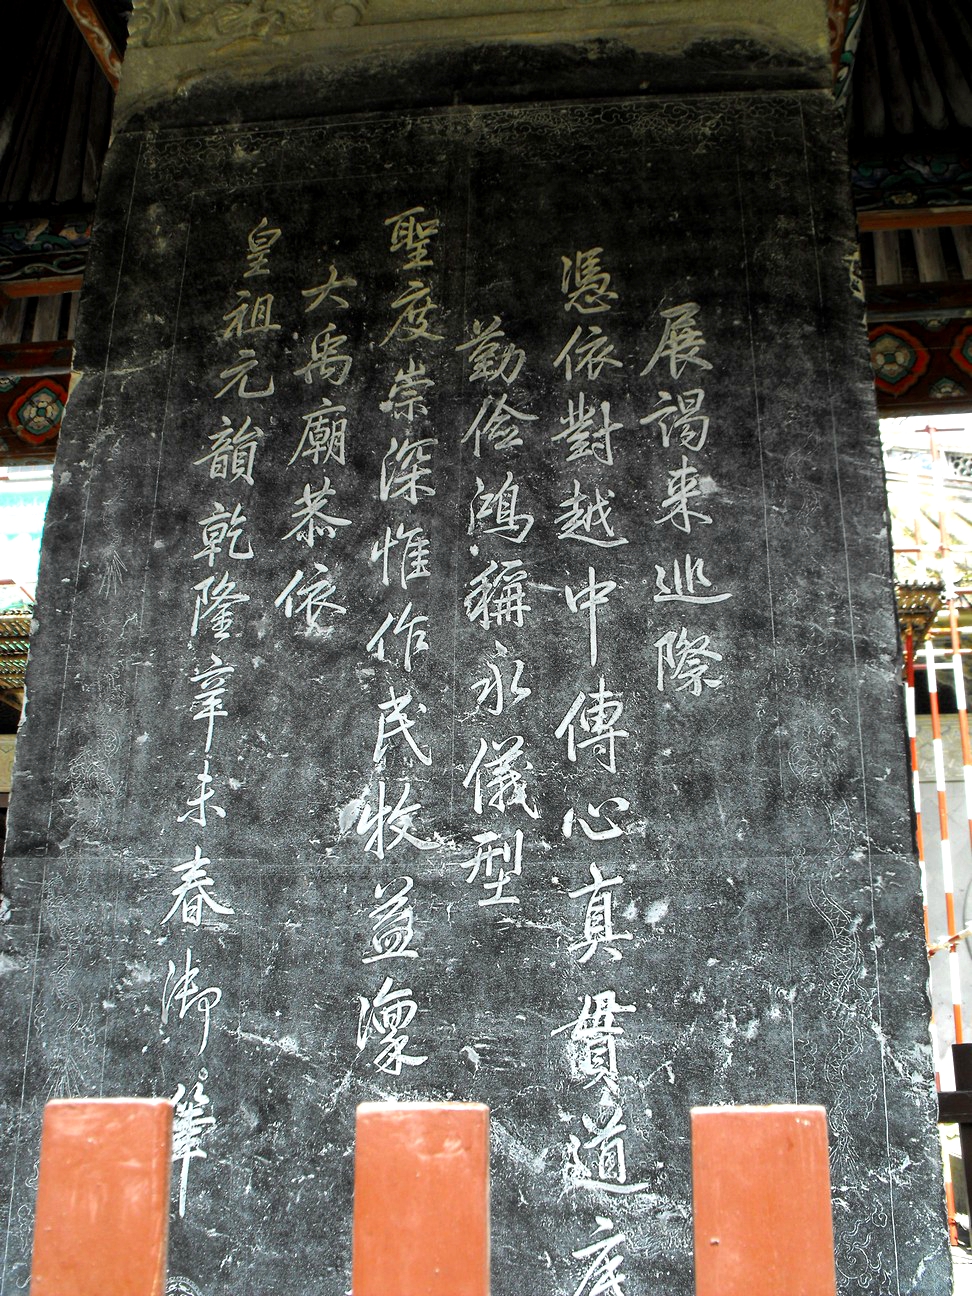 展謁来巡際
憑依對越中傳心真貫道底
勤儉鴻稱永儀型
聖度崇深惟作民牧益凜
大禹廟恭依
皇祖元韻乾隆辛未春御筆